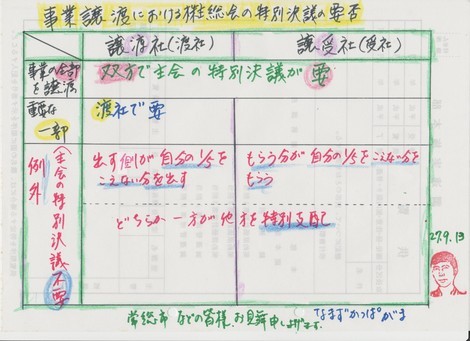 事業譲渡における株主総会の特別決議の要否
譲渡社(渡社)
譲受社(受社)
事業の全部
を譲渡
双方で主会の特別決議が要
重要な
一部
渡社で要
例外
(主会の特別決議不要)
出す側が自分の1/5を
こえない分を出す
もらう分が自分の1/5をこえない分を
もらう
どちらか一方が他方を特別支配
27.9.13
常総市などの皆様、お見舞申し上げます。
なまずかっぱがま